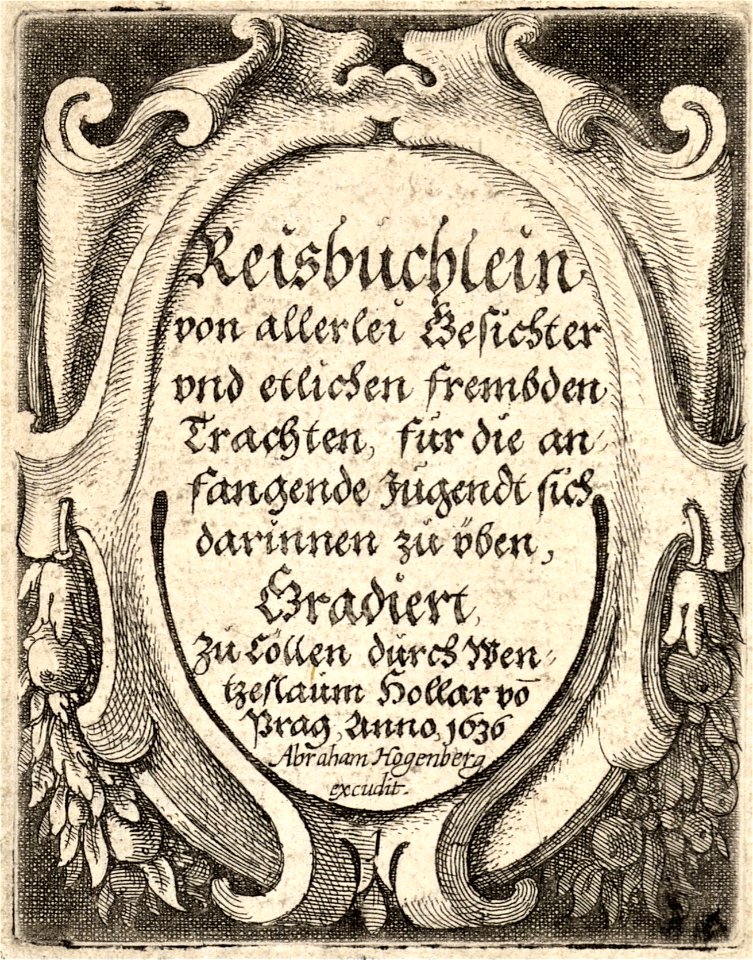 Reisbuchlein
von allerlei Gesichter
vnd etlichen frembden
Trachten, für die an-
fangende Jŭgendt sich
darinnen zŭ v̈ben,
Gradiert,
Zŭ Cöllen dŭrch Wen-
tzeslaŭm Hollar vō
Prag, Anno, 1636
Abraham Hogenberg
excudit.